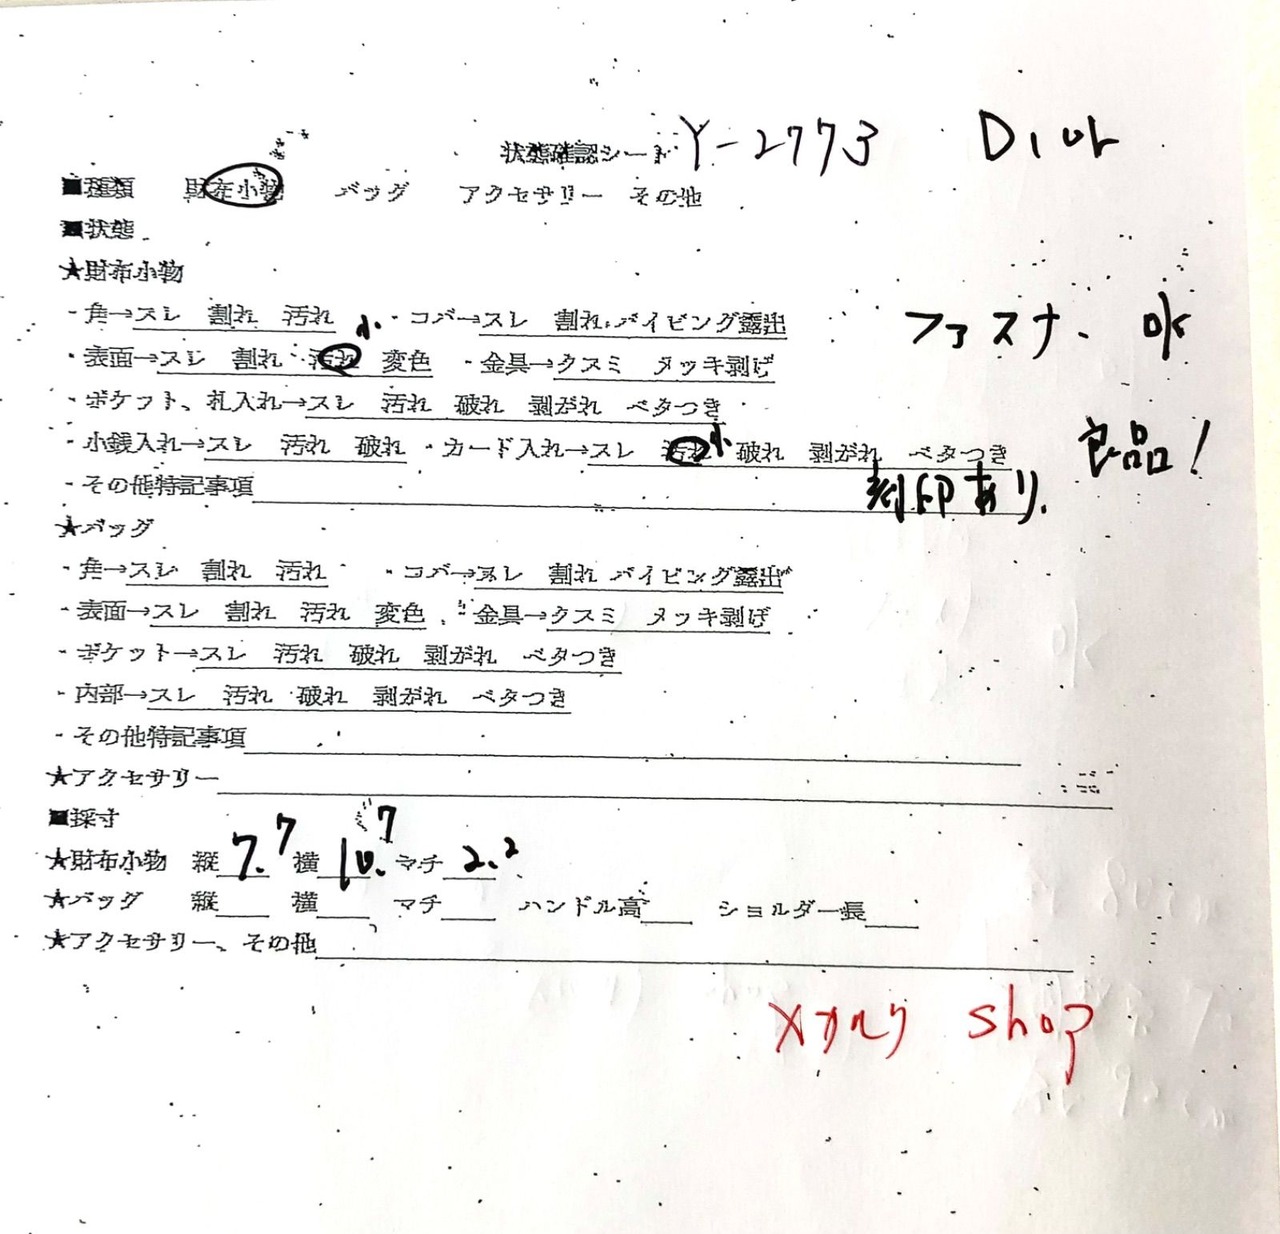 状態確認シート Y-2773 Dior
■種類 財布小物 バッグ アクセサリー その他
■状態
★財布小物
・角→スレ 割れ 汚れ ・コバ→スレ 割れ パイピング露出
小
ファスナー OK
・表面→スレ 割れ 汚れ 変色 ・金具→クスミ メッキ剥げ
・ポケット、札入れ→スレ 汚れ 破れ 剥がれ ベタつき
・小銭入れ→スレ 汚れ 破れ ・カード入れ→スレ 汚れ小 破れ 剥がれ ベタつき
良品!
・その他特記事項 刻印あり.
★バッグ
・角→スレ 割れ 汚れ ・コバ→スレ 割れ パイピング露出
・表面→スレ 割れ 汚れ 変色 ・金具→クスミ メッキ剥げ
・ポケット→スレ 汚れ 破れ 剥がれ ベタつき
・内部→スレ 汚れ 破れ 剥がれ ベタつき
・その他特記事項
★アクセサリー
■採寸
★財布小物 縦 7.7 横 10.7 マチ 2.2
★バッグ 縦 横 マチ ハンドル高 ショルダー長
★アクセサリー、その他
メルカリ shop